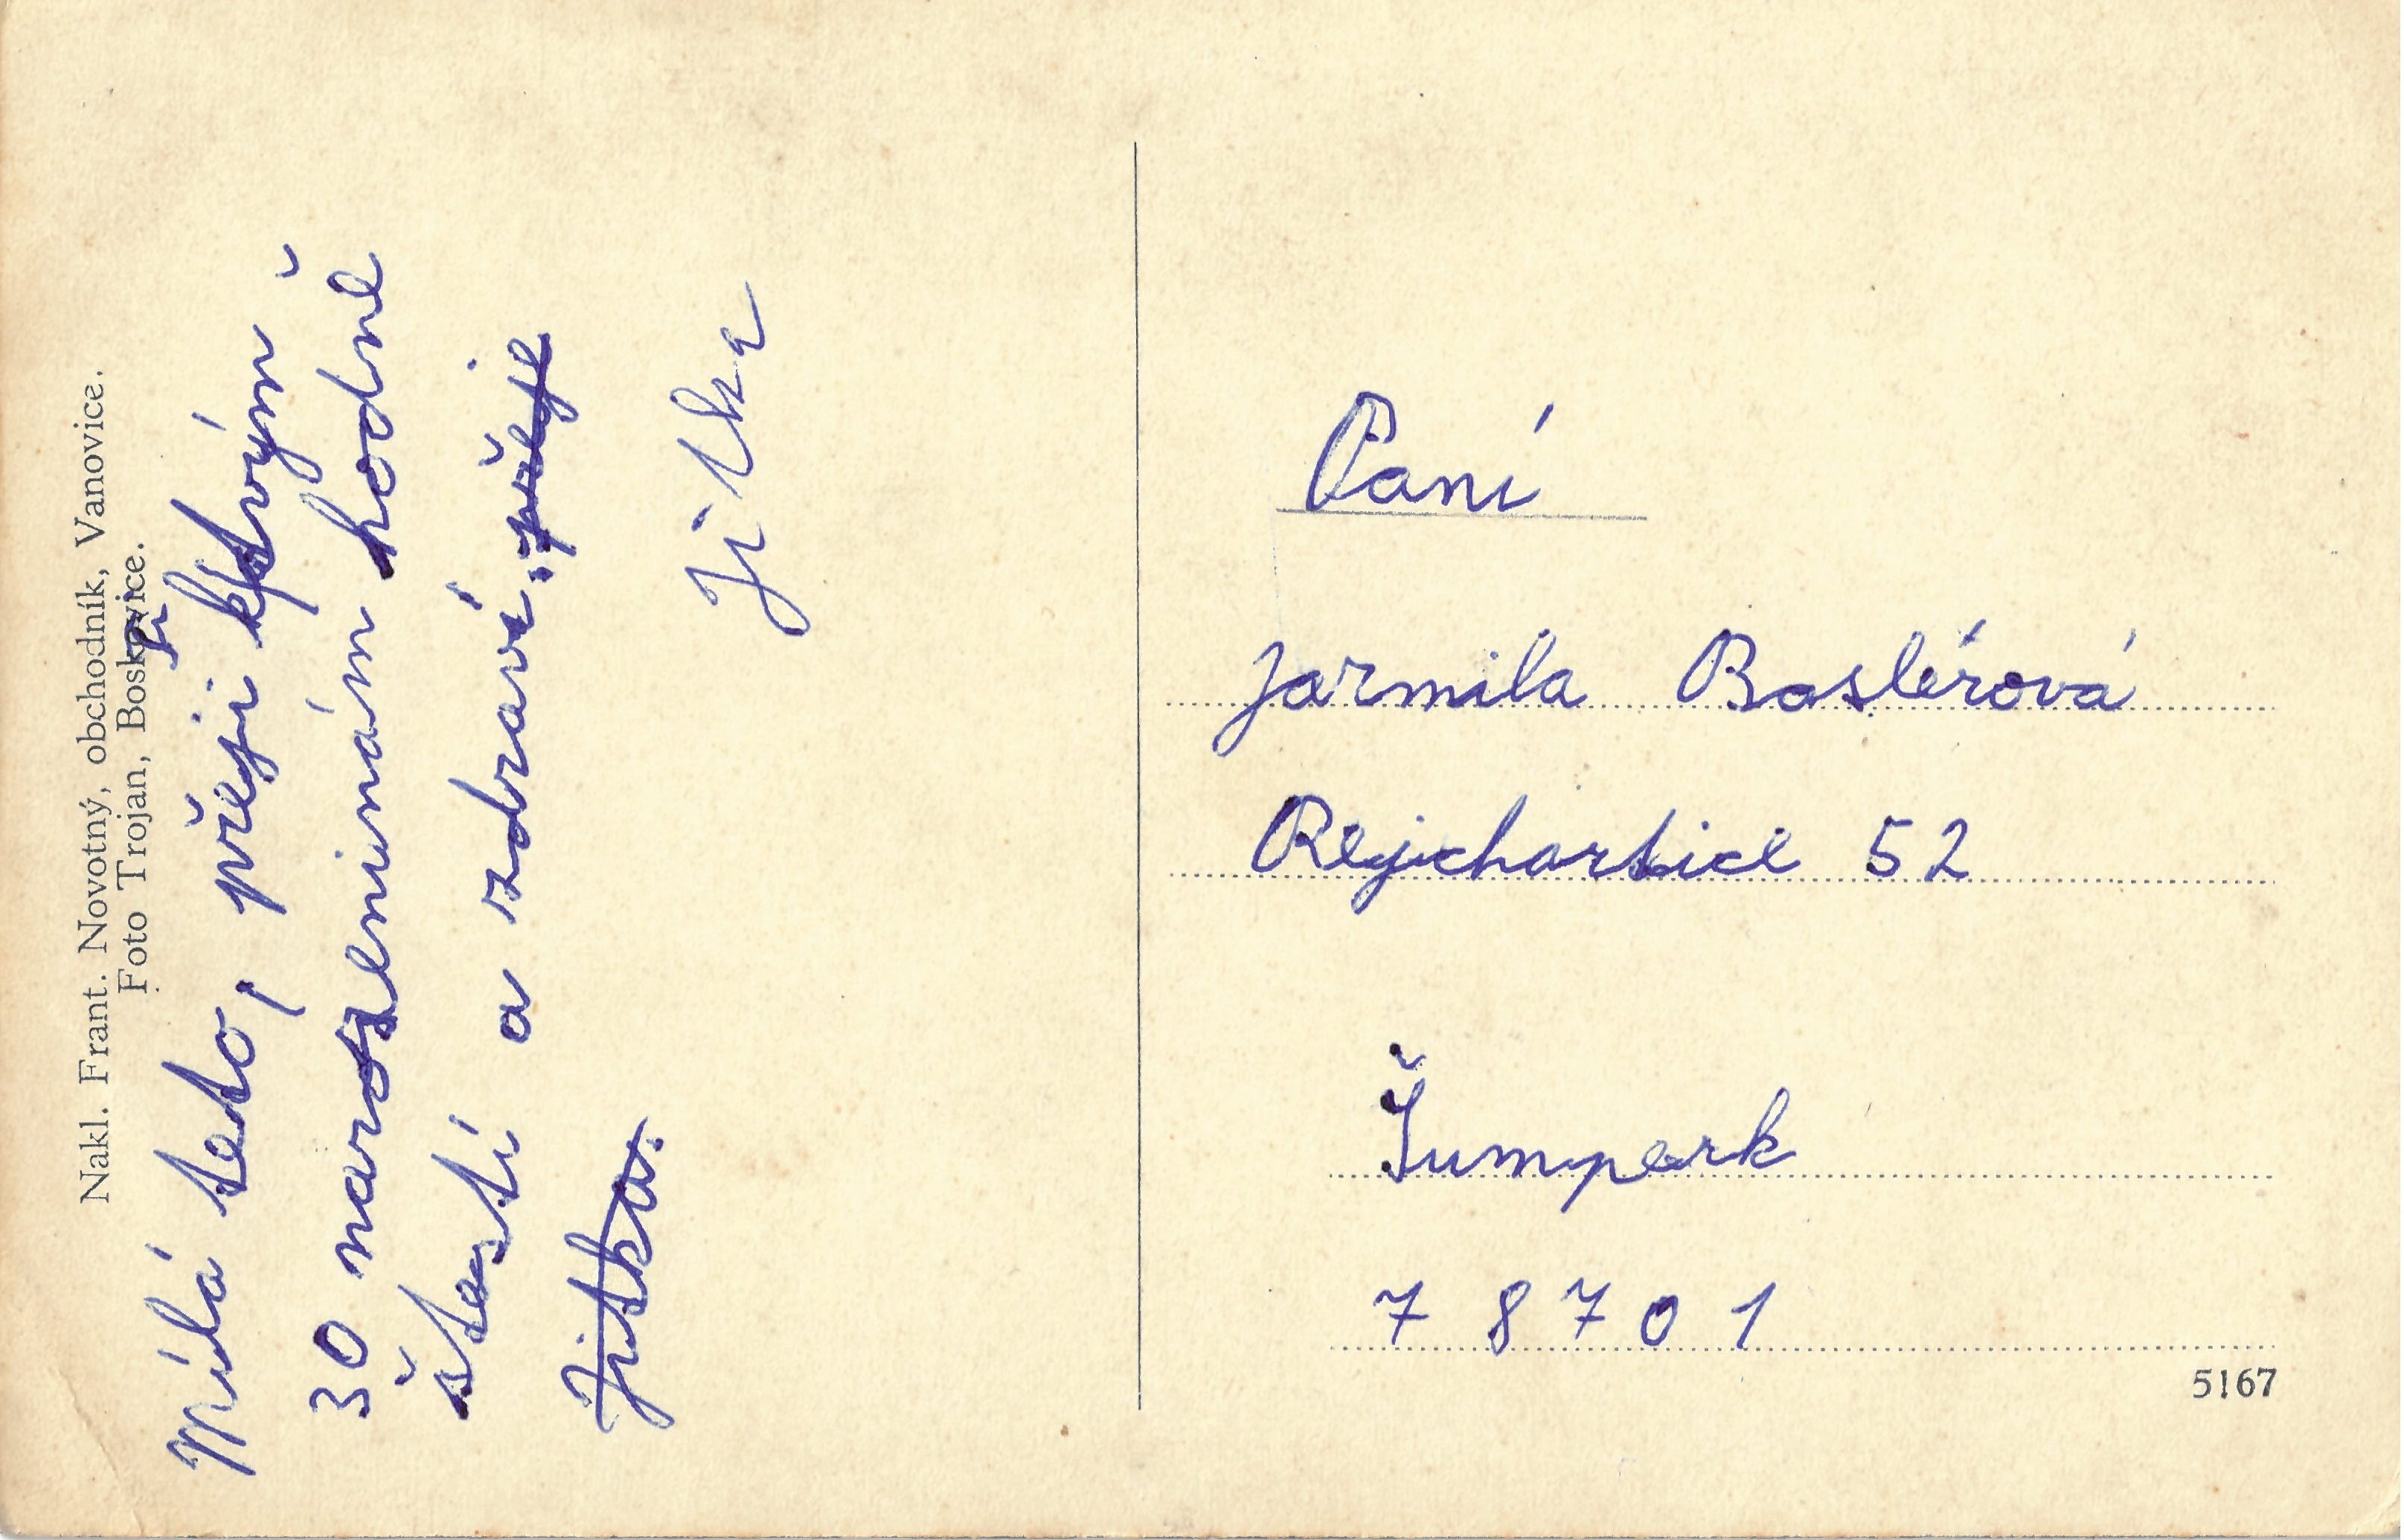 Nakl. Frant. Novotný, obchodník, Vanovice.
Foto Trojan, Boskovice.
Milá teto, přeji ti k tvým
30 narozeninám hodně
štestí a zdraví. přeje
Jitka.
Jitka
Paní
Jarmila Baslérová
Rejchartice 52
Šumperk
7 8 7 0 1
5167